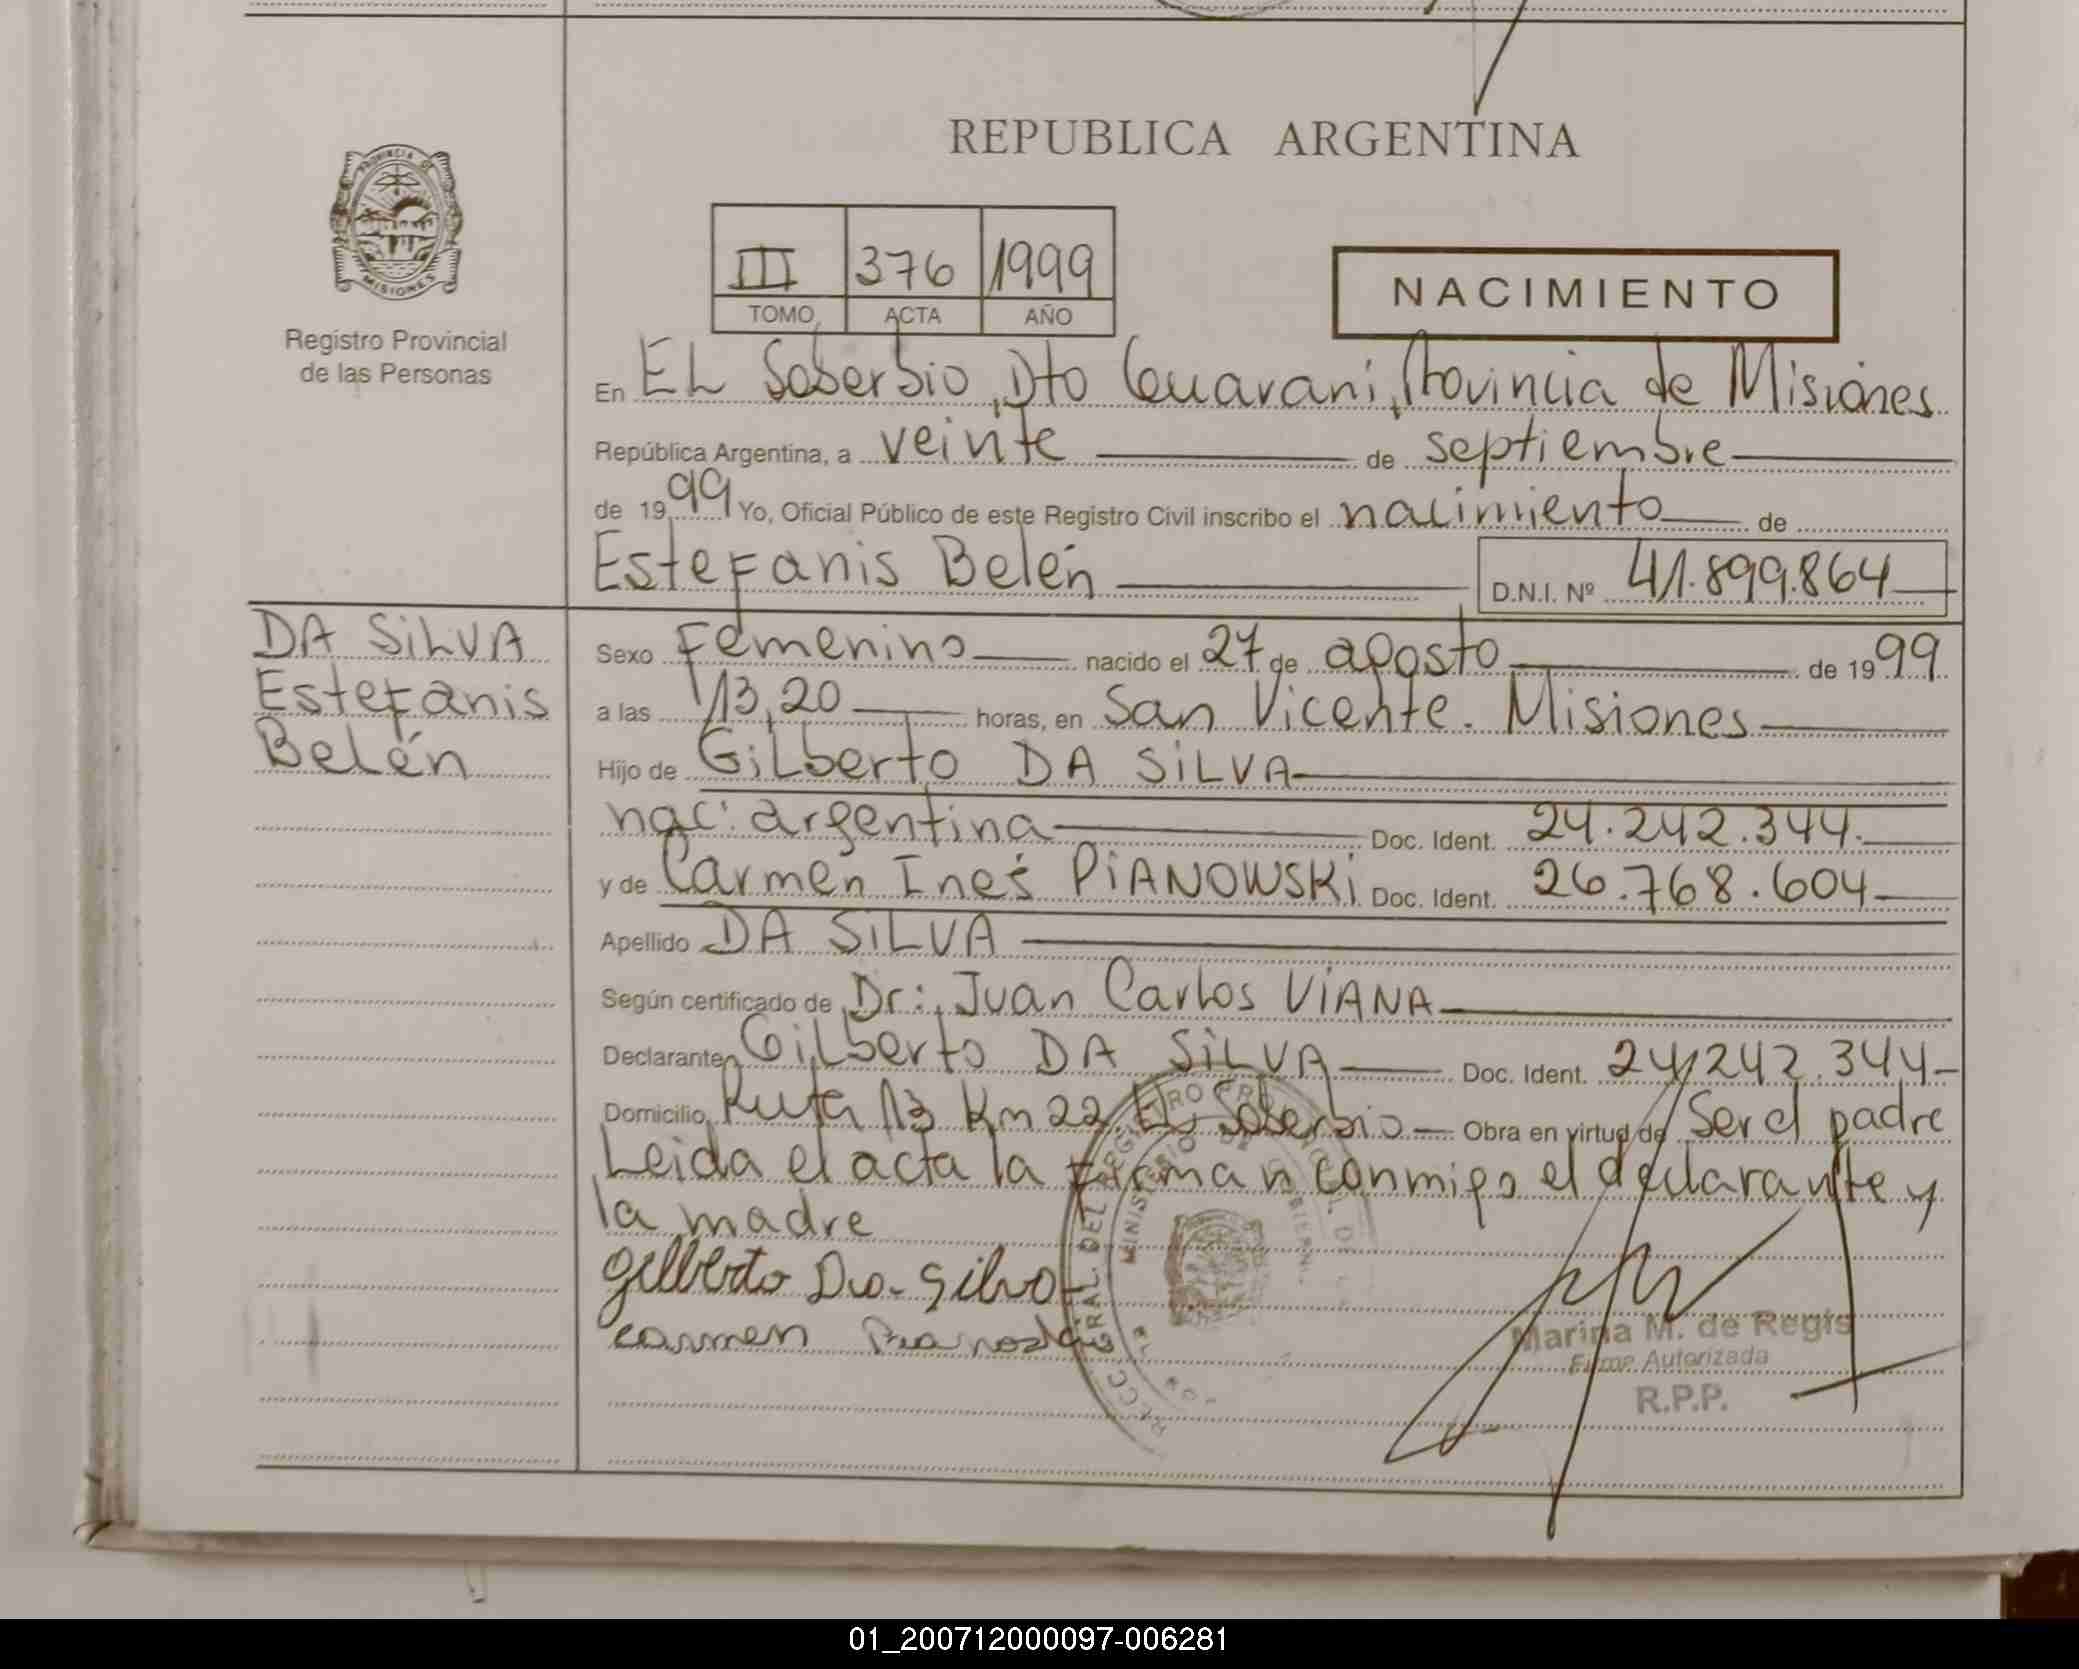 REPUBLICA ARGENTINA
PROVINCIA DE
MISIONES
Registro Provincial
de las Personas
III 376 1999
TOMO ACTA AÑO
NACIMIENTO
En EL Soberbio, Dto Guaraní, Provincia de Misiones
República Argentina, a veinte de septiembre
de 1999 Yo, Oficial Público de este Registro Civil inscribo el nacimiento de
Estefanis Belén D.N.I. Nº 41.899.864
DA SILVA
Estefanis
Belén
Sexo Femenino nacido el 27 de agosto de 1999
a las 13,20 horas, en San Vicente. Misiones
Hijo de Gilberto DA SILVA
nac: argentina Doc. Ident. 24.242.344.
y de Carmen Inés PIANOWSKI Doc. Ident. 26.768.604
Apellido DA SILVA
Según certificado de Dr: Juan Carlos VIANA
Declarante Gilberto DA SILVA Doc. Ident. 24.242.344
Domicilio Ruta 13 Km 22. EL Soberbio Obra en virtud de Ser el padre
Leida el acta la firman conmigo el declarante y
la madre
gilberto Da Silva
carmen
Marina M. de Regis
Firma Autorizada
R.P.P.
01_200712000097-006281